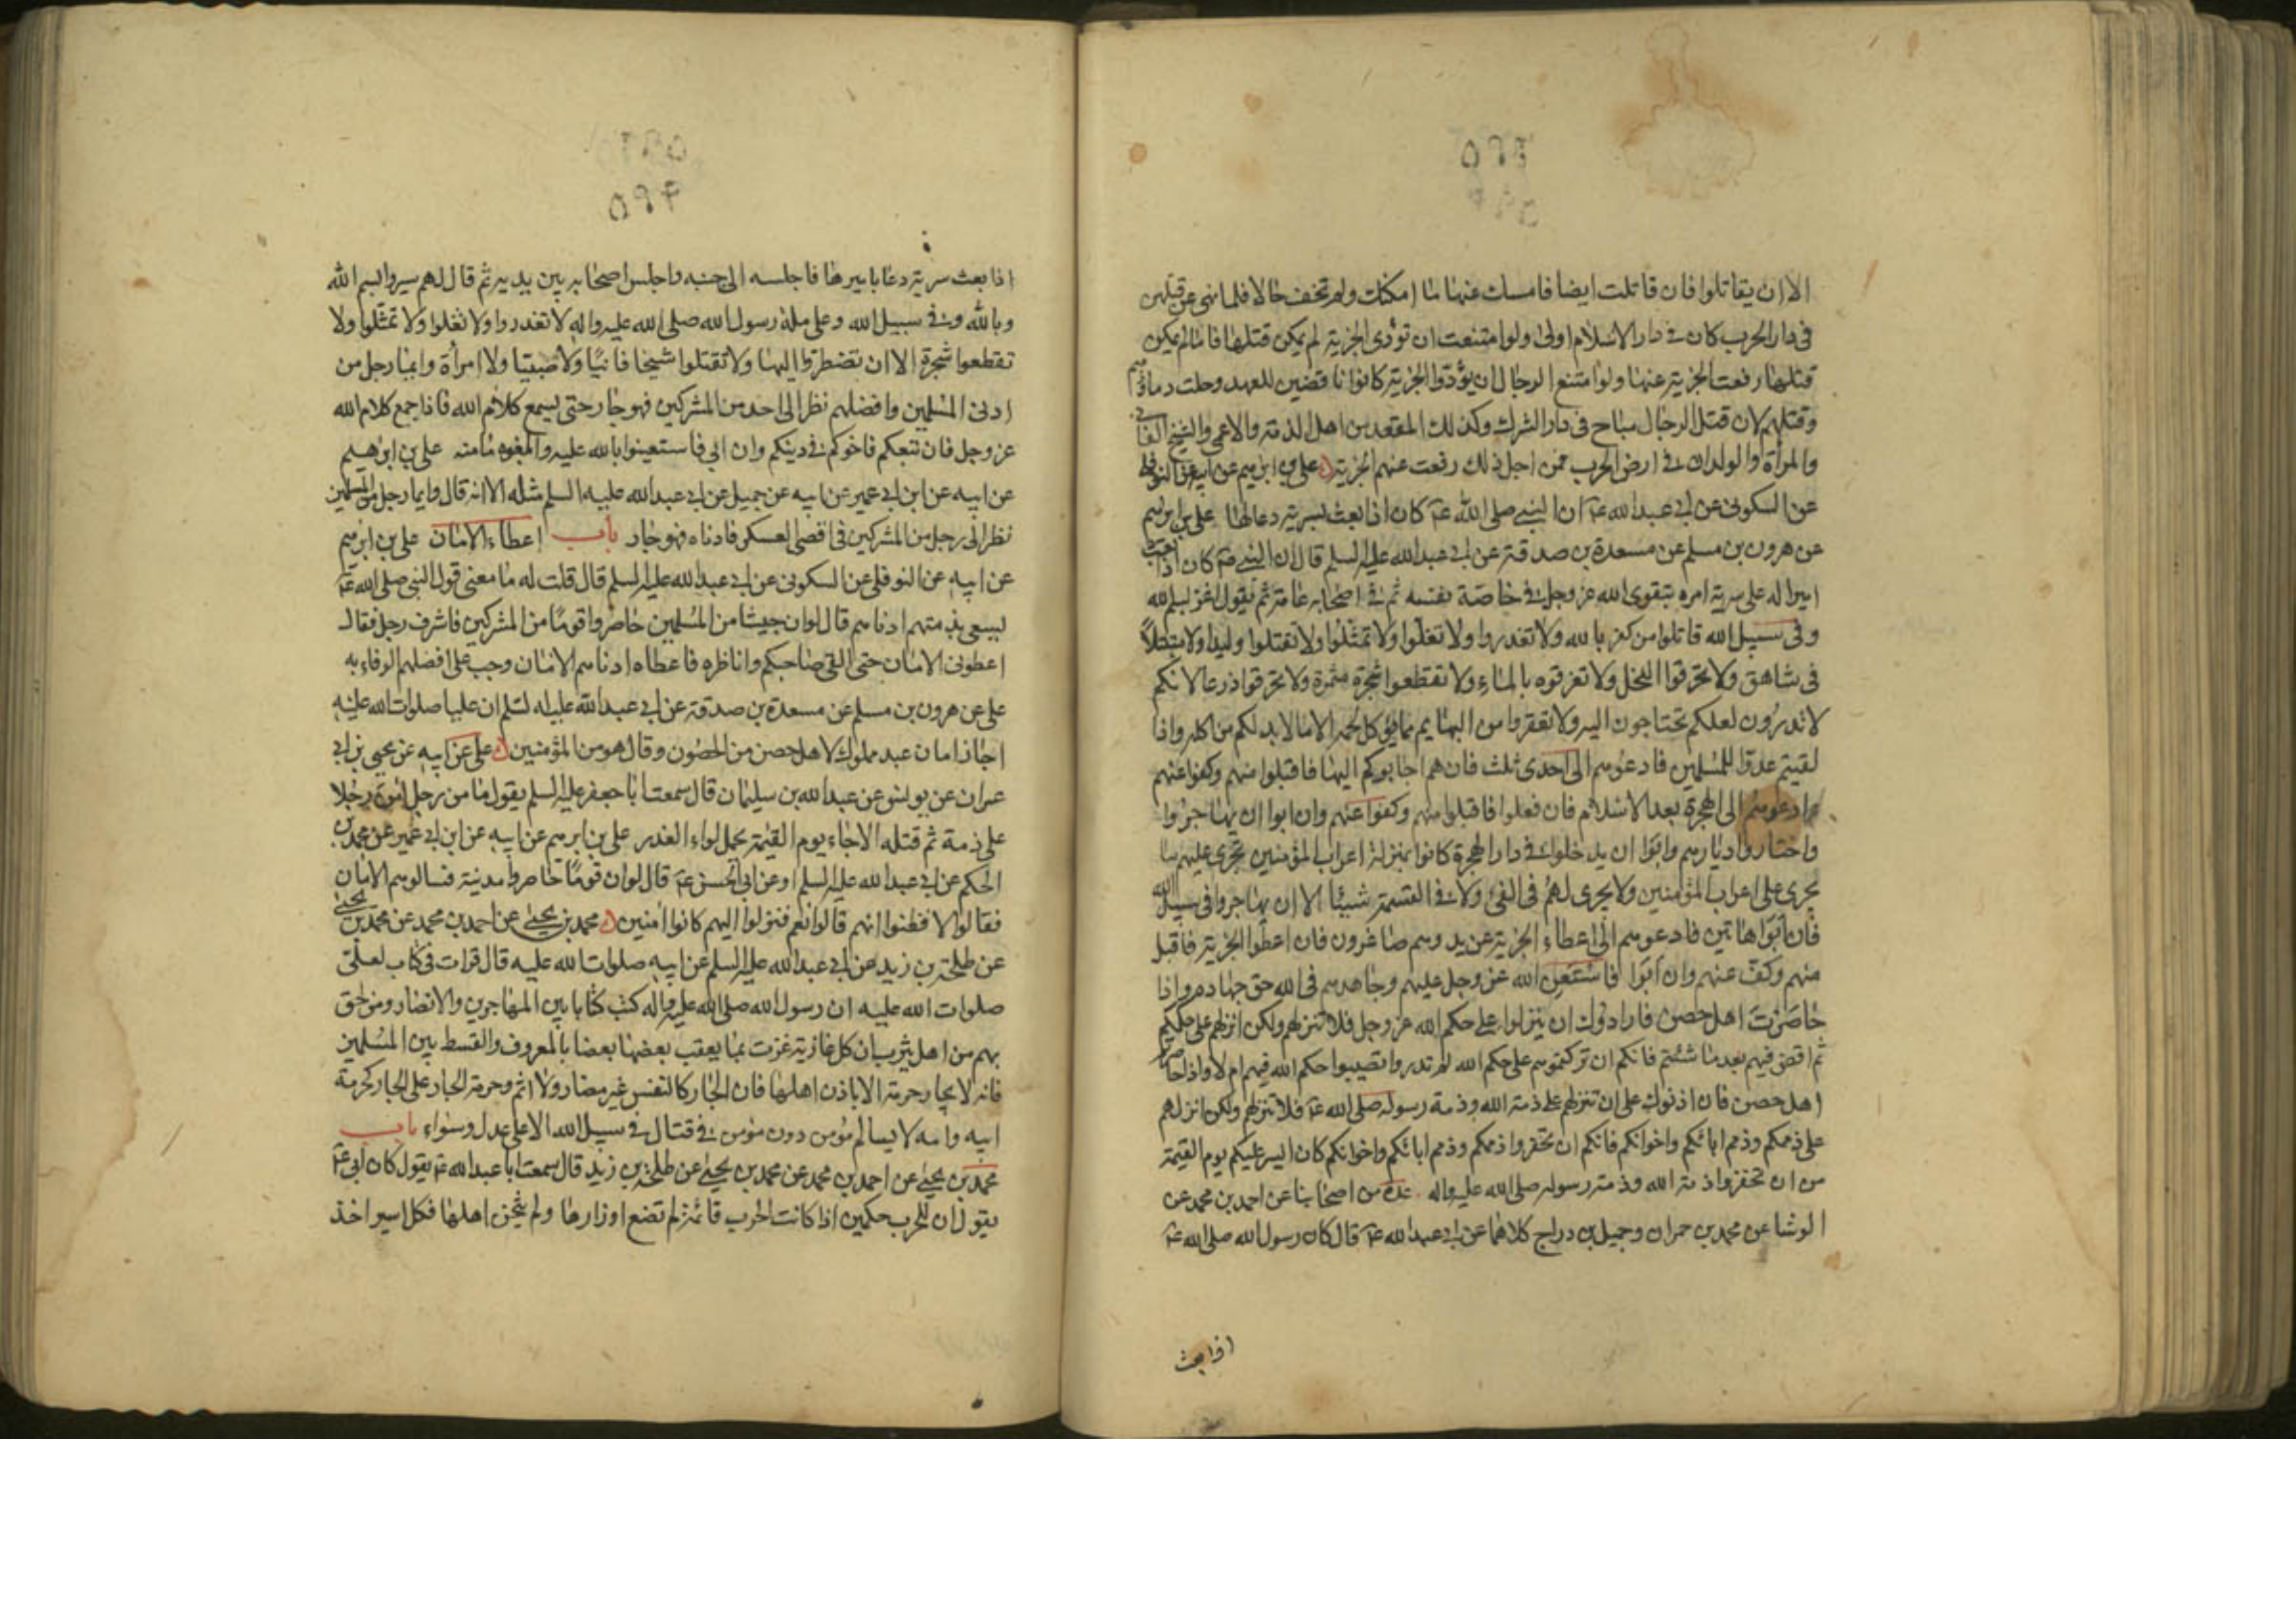 الا ان يقاتلوا فان قاتلت ايضا فامسك عنها ما امكنك ولم تخف حالا فلما نهى عن قتلهن
فى دار الحرب كان فى دار الاسلام اولى ولو امتنعت ان تؤدى الجزية لم يمكن قتلها فلما لم يمكن
قتلها رفعت الجزية عنها ولو امتنع الرجال ان يؤدوا الجزية كانوا ناقضين للعهد وحلت دماؤهم
وقتلهم لان قتل الرجال مباح فى دار الشرك وكذلك المقعد من اهل الذمة والاعمى والشيخ الفانى
والمرأة والولدان فى ارض الحرب فمن اجل ذلك رفعت عنهم الجزية على بن ابرهيم عن ابيه عن النوفلى
عن السكونى عن ابى عبد الله ع ان النبى صلى الله ع كان اذا بعث بسرية دعا لها على بن ابرهيم
عن هرون بن مسلم عن مسعدة بن صدقة عن ابى عبد الله عليه السلم قال ان النبى ص كان اذا بعث
اميرا له على سرية امره بتقوى الله عز وجل فى خاصة نفسه ثم فى اصحابه عامة ثم يقول اغز بسم الله
وفى سبيل الله قاتلوا من كفر بالله ولا تغدروا ولا تغلوا ولا تمثلوا ولا تقتلوا وليدا ولا متبتلا
فى شاهق ولا تحرقوا النخل ولا تغرقوه بالماء ولا تقطعوا شجرة مثمرة ولا تحرقوا زرعا لانكم
لا تدرون لعلكم تحتاجون اليه ولا تعقروا من البهايم مما يؤكل لحمه الا ما لا بد لكم من اكله واذا
لقيتم عدوا للمسلمين فادعوهم الى احدى ثلث فان هم اجابوكم اليها فاقبلوا منهم وكفوا عنهم
وادعوهم الى الهجرة بعد الاسلام فان فعلوا فاقبلوا منهم وكفوا عنهم وان ابوا ان يهاجروا
واختاروا ديارهم وابوا ان يدخلوا فى دار الهجرة كانوا بمنزلة اعراب المؤمنين يجرى عليهم ما
يجرى على اعراب المؤمنين ولا يجرى لهم فى الفئ ولا فى القسمة شيئا الا ان يهاجروا فى سبيل الله
فان ابوا هاتين فادعوهم الى اعطاء الجزية عن يد وهم صاغرون فان اعطوا الجزية فاقبل
منهم وكف عنهم وان ابوا فاستعن الله عز وجل عليهم وجاهدهم فى الله حق جهاده واذا
حاصرت اهل حصن فارادوك ان ينزلوا على حكم الله عز وجل فلا تنزلهم ولكن انزلهم على حكمكم
ثم اقض فيهم بعد ما شئتم فانكم ان تركتموهم على حكم الله لم تدروا تصيبوا حكم الله فيهم ام لا واذا حاصرتم
اهل حصن فان اذنوك على ان تنزلهم على ذمة الله وذمة رسوله صلى الله ع فلا تنزلهم ولكن انزلهم
على ذممكم وذمم ابائكم واخوانكم فانكم ان تخفروا ذممكم وذمم ابائكم واخوانكم كان ايسر عليكم يوم القيمة
من ان تخفروا ذمة الله وذمة رسوله صلى الله عليه واله عدة من اصحابنا عن احمد بن محمد عن
الوشا عن محمد بن حمران وجميل بن دراج كلاهما عن ابى عبد الله ع قال كان رسول الله صلى الله ع
اذا بعث
اذا بعث سرية دعا باميرها فاجلسه الى جنبه واجلس اصحابه بين يديه ثم قال لهم سيروا بسم الله
وبالله وفى سبيل الله وعلى ملة رسول الله صلى الله عليه واله لا تغدروا ولا تغلوا ولا تمثلوا ولا
تقطعوا شجرة الا ان تضطروا اليها ولا تقتلوا شيخا فانيا ولا صبيا ولا امرأة وايما رجل من
ادنى المسلمين وافضلهم نظر الى احد من المشركين فهو جار حتى يسمع كلام الله فاذا سمع كلام الله
عز وجل فان تبعكم فاخوكم فى دينكم وان ابى فاستعينوا بالله عليه وابلغوه مامنه على بن ابرهيم
عن ابيه عن ابن ابى عمير عن ابيه عن جميل عن ابى عبد الله عليه السلم مثله الا انه قال وايما رجل من المسلمين
نظر الى رجل من المشركين فى اقصى العسكر فادناه فهو جار باب اعطاء الامان على بن ابرهيم
عن ابيه عن النوفلى عن السكونى عن ابى عبد الله عليه السلم قال قلت له ما معنى قول النبى صلى الله ع
ليسعى بذمتهم ادناهم قال لو ان جيشا من المسلمين حاصروا قوما من المشركين فاشرف رجل فقال
اعطونى الامان حتى القى صاحبكم واناظره فاعطاه ادناهم الامان وجب على افضلهم الوفاء به
على عن هرون بن مسلم عن مسعدة بن صدقة عن ابى عبد الله عليه السلم ان عليا صلوات الله عليه
اجاز امان عبد مملوك لاهل حصن من الحصون وقال هو من المؤمنين على عن ابيه عن يحيى بن ابى
عمران عن يونس عن عبد الله بن سليمان قال سمعت ابا جعفر عليه السلم يقول ما من رجل امن رجلا
على ذمة ثم قتله الا جاء يوم القيمة يحمل لواء الغدر على بن ابرهيم عن ابيه عن ابن ابى عمير عن محمد بن
الحكم عن ابى عبد الله عليه السلم او عن ابى الحسن ع قال لو ان قوما حاصروا مدينة فسالوهم الامان
فقالوا لا فظنوا انهم قالوا نعم فنزلوا اليهم كانوا امنين محمد بن يحيى عن احمد بن محمد عن محمد بن يحيى
عن طلحة بن زيد عن ابى عبد الله عليه السلم عن ابيه صلوات الله عليه قال قرات فى كتاب لعلى
صلوات الله عليه ان رسول الله صلى الله عليه واله كتب كتابا بين المهاجرين والانصار ومن لحق
بهم من اهل يثرب ان كل غازية غزت بما يعقب بعضها بعضا بالمعروف والقسط بين المسلمين
فانه لا يجار حرمة الا باذن اهلها فان الجار كالنفس غير مضار ولا اثم وحرمة الجار على الجار كحرمة
ابيه وامه لا يسالم مؤمن دون مؤمن فى قتال فى سبيل الله الا على عدل وسواء باب
محمد بن يحيى عن احمد بن محمد عن محمد بن يحيى عن طلحة بن زيد قال سمعت ابا عبد الله ع يقول كان ابى ع
يقول ان للحرب حكمين اذا كانت الحرب قائمة لم تضع اوزارها ولم يثخن اهلها فكل اسير اخذ